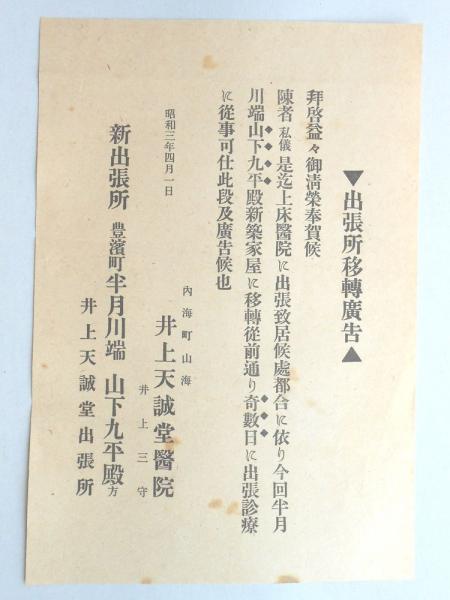 ▼出張所移轉廣告▲
拜啓益々御淸榮奉賀候
陳者私儀是迄上床醫院に出張致居候處都合に依り今回半月
川端山下九平殿新築家屋に移轉從前通り奇數日に出張診療
に從事可仕此段及廣告候也
昭和三年四月一日
內海町山海
井上天誠堂醫院
井上三守
新出張所 豊濱町半月川端 山下九平殿方
井上天誠堂出張所